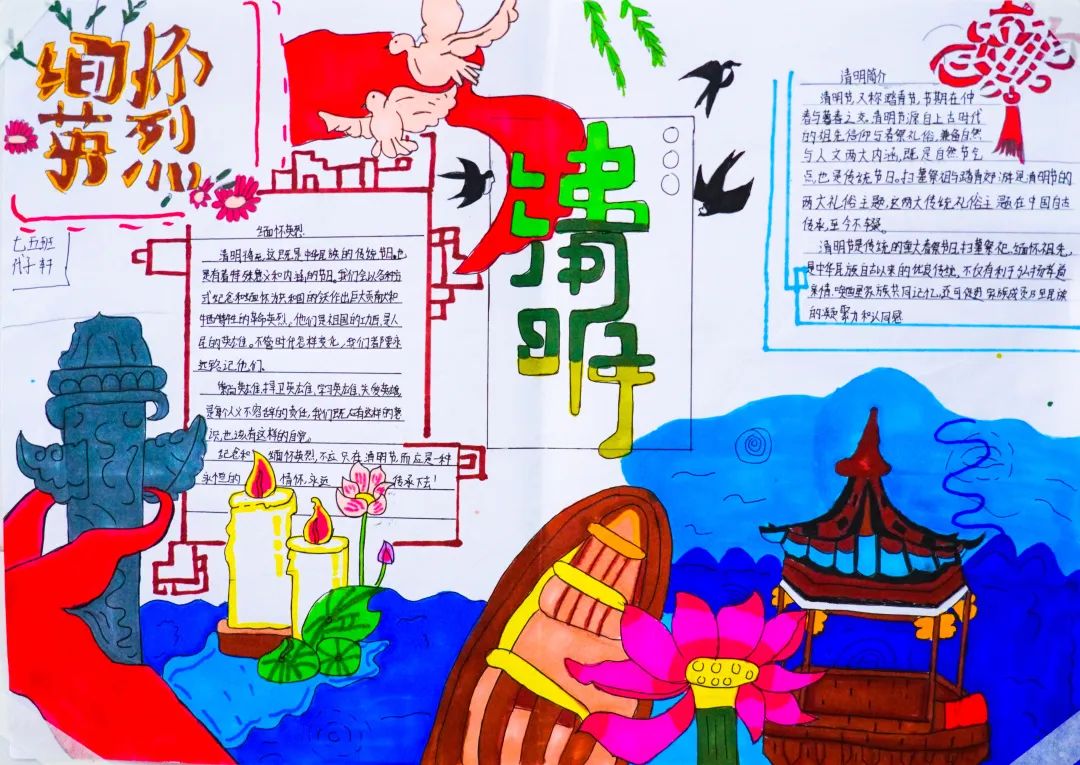 缅怀
英烈
七五班
清明
缅怀英烈
清明将至,这既是中华民族的传统节日,也
是有着特殊意义和内涵的节日。我们会以各种方
式纪念和缅怀为共和国的 作出巨大贡献和
牺牲的革命英烈。他们是祖国的功臣,是人
民的英雄。不管时代怎样变化,我们都要永
远铭记他们。
崇尚英雄,捍卫英雄,学习英雄,关爱英雄,
是每个人义不容辞的责任,我们既应有这样的意
识,也该有这样的自觉。
纪念和 缅怀英烈,不应只在清明节而应是一种
永恒的 情怀,永远 传承下去!
清明简介
清明节又称踏青节,节期在仲
春与暮春之交。清明节源自上古时代
的祖先信仰与春祭礼俗,兼备自然
与人文两大内涵,既是自然节气
点,也是传统节日。扫墓祭祖与踏青郊游是清明节的
两大礼俗主题,这两大传统礼俗主题在中国自古
传承,至今不辍。
清明节是传统的重大春祭节日,扫墓祭祀、缅怀祖先,
是中华民族自古以来的优良传统,不仅有利于弘扬孝道
亲情、唤醒家族共同记忆,还可促进家族成员乃至民族
的凝聚力和认同感